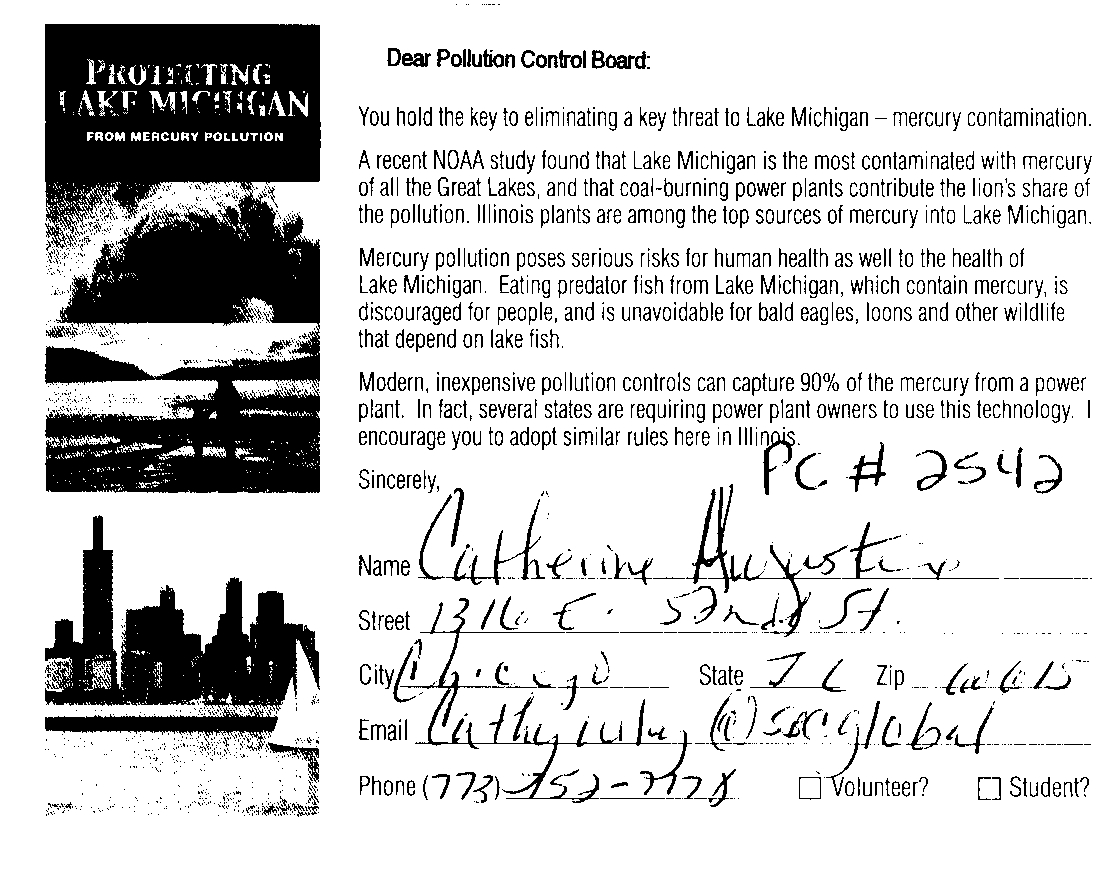 PROTECTING
LAKE MICHIGAN
FROM MERCURY POLLUTION
Dear Pollution Control Board:
You hold the key to eliminating a key threat to Lake Michigan – mercury contamination.
A recent NOAA study found that Lake Michigan is the most contaminated with mercury
of all the Great Lakes, and that coal-burning power plants contribute the lion's share of
the pollution. Illinois plants are among the top sources of mercury into Lake Michigan.
Mercury pollution poses serious risks for human health as well to the health of
Lake Michigan. Eating predator fish from Lake Michigan, which contain mercury, is
discouraged for people, and is unavoidable for bald eagles, loons and other wildlife
that depend on lake fish.
Modern, inexpensive pollution controls can capture 90% of the mercury from a power
plant. In fact, several states are requiring power plant owners to use this technology. I
encourage you to adopt similar rules here in Illinois.
PC # 2542
Sincerely,
Name Catherine
Street 1316 E. 52nd St.
City Chicago State IL Zip 60615
Email @sbcglobal
Phone (773) 752-7778 Volunteer? Student?